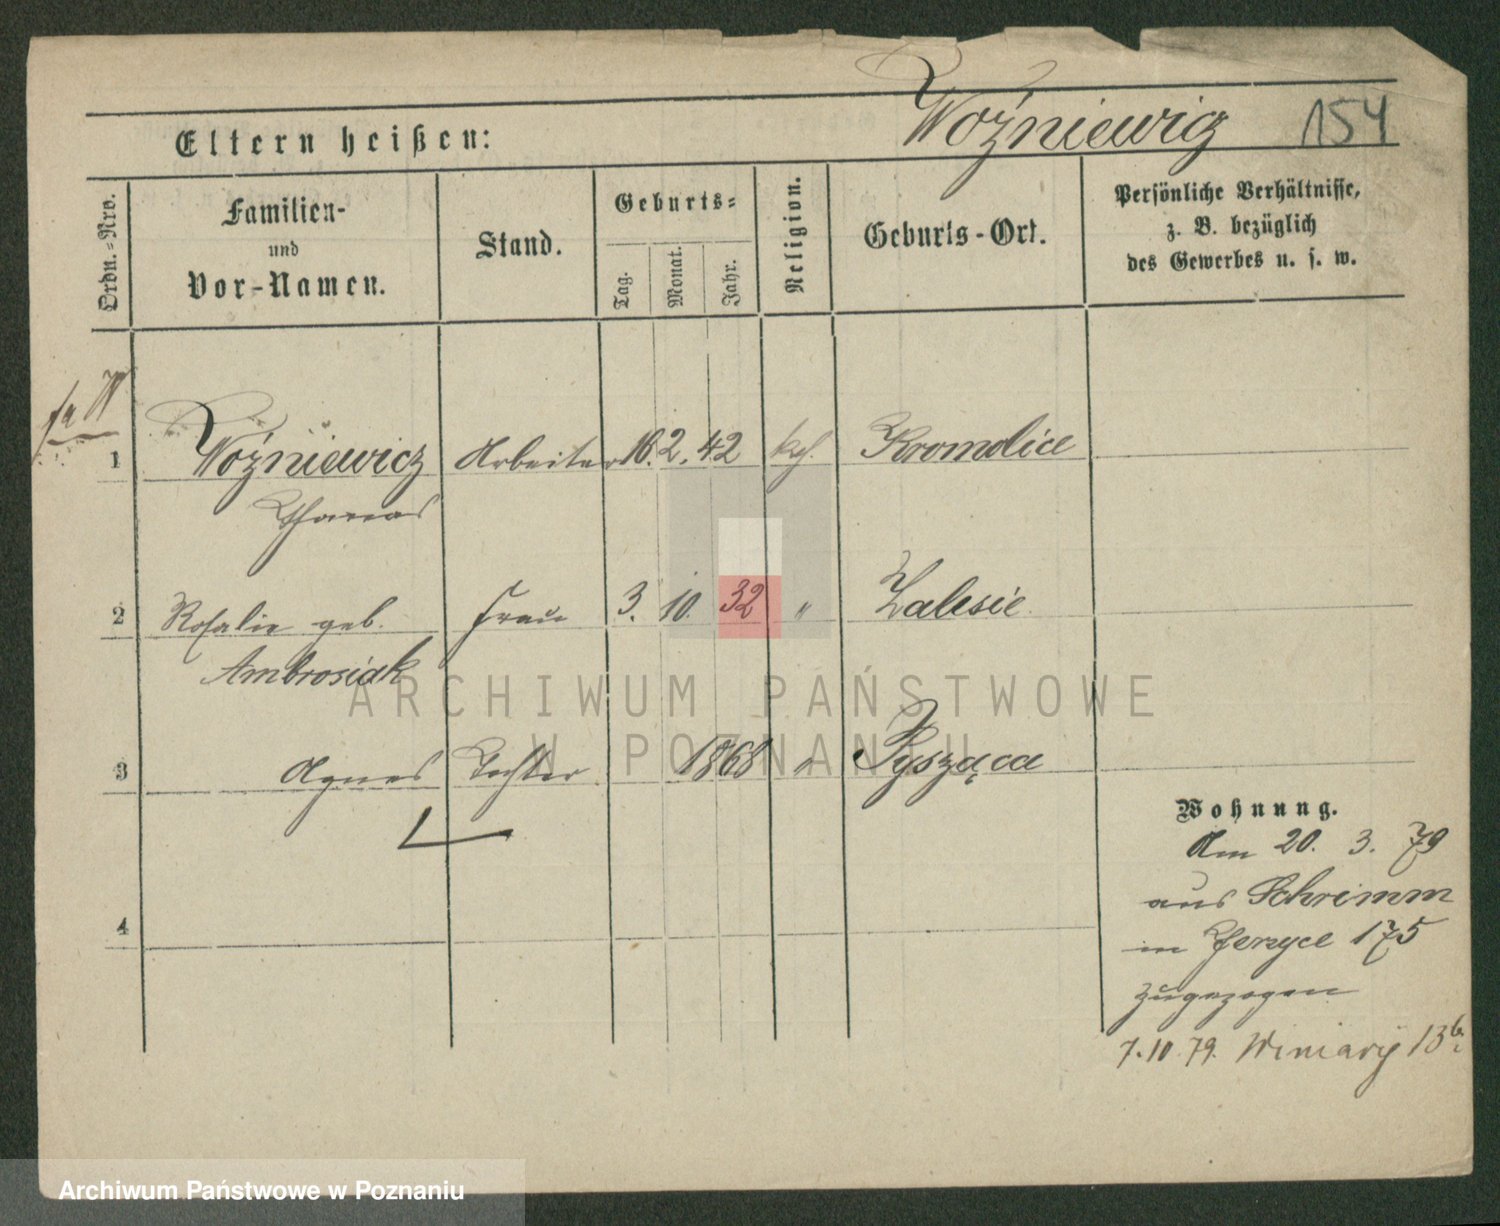 Woźniewicz 154
Eltern heißen:
Ordn.-Nro.
Familien-
und
Vor-Namen.
Stand.
Geburts-
Tag.
Monat.
Jahr.
Religion.
Geburts-Ort.
Persönliche Verhältnisse,
z. B. bezüglich
des Gewerbes u. s. w.
1 Woźniewicz Arbeiter 16. 2. 42 kath. Kromolice
Thomas
2 Rosalie geb. Frau 3. 10. 32 " Zalesie
Ambrosiak
ARCHIWUM PAŃSTWOWE
W POZNANIU
3 Agnes Tochter 1868 " Pysząca
4
Wohnung.
Am 20. 3. 79
aus Schrimm
in Jerzyce 175
zugezogen
7. 10. 79. Winiary 13b.
Archiwum Państwowe w Poznaniu